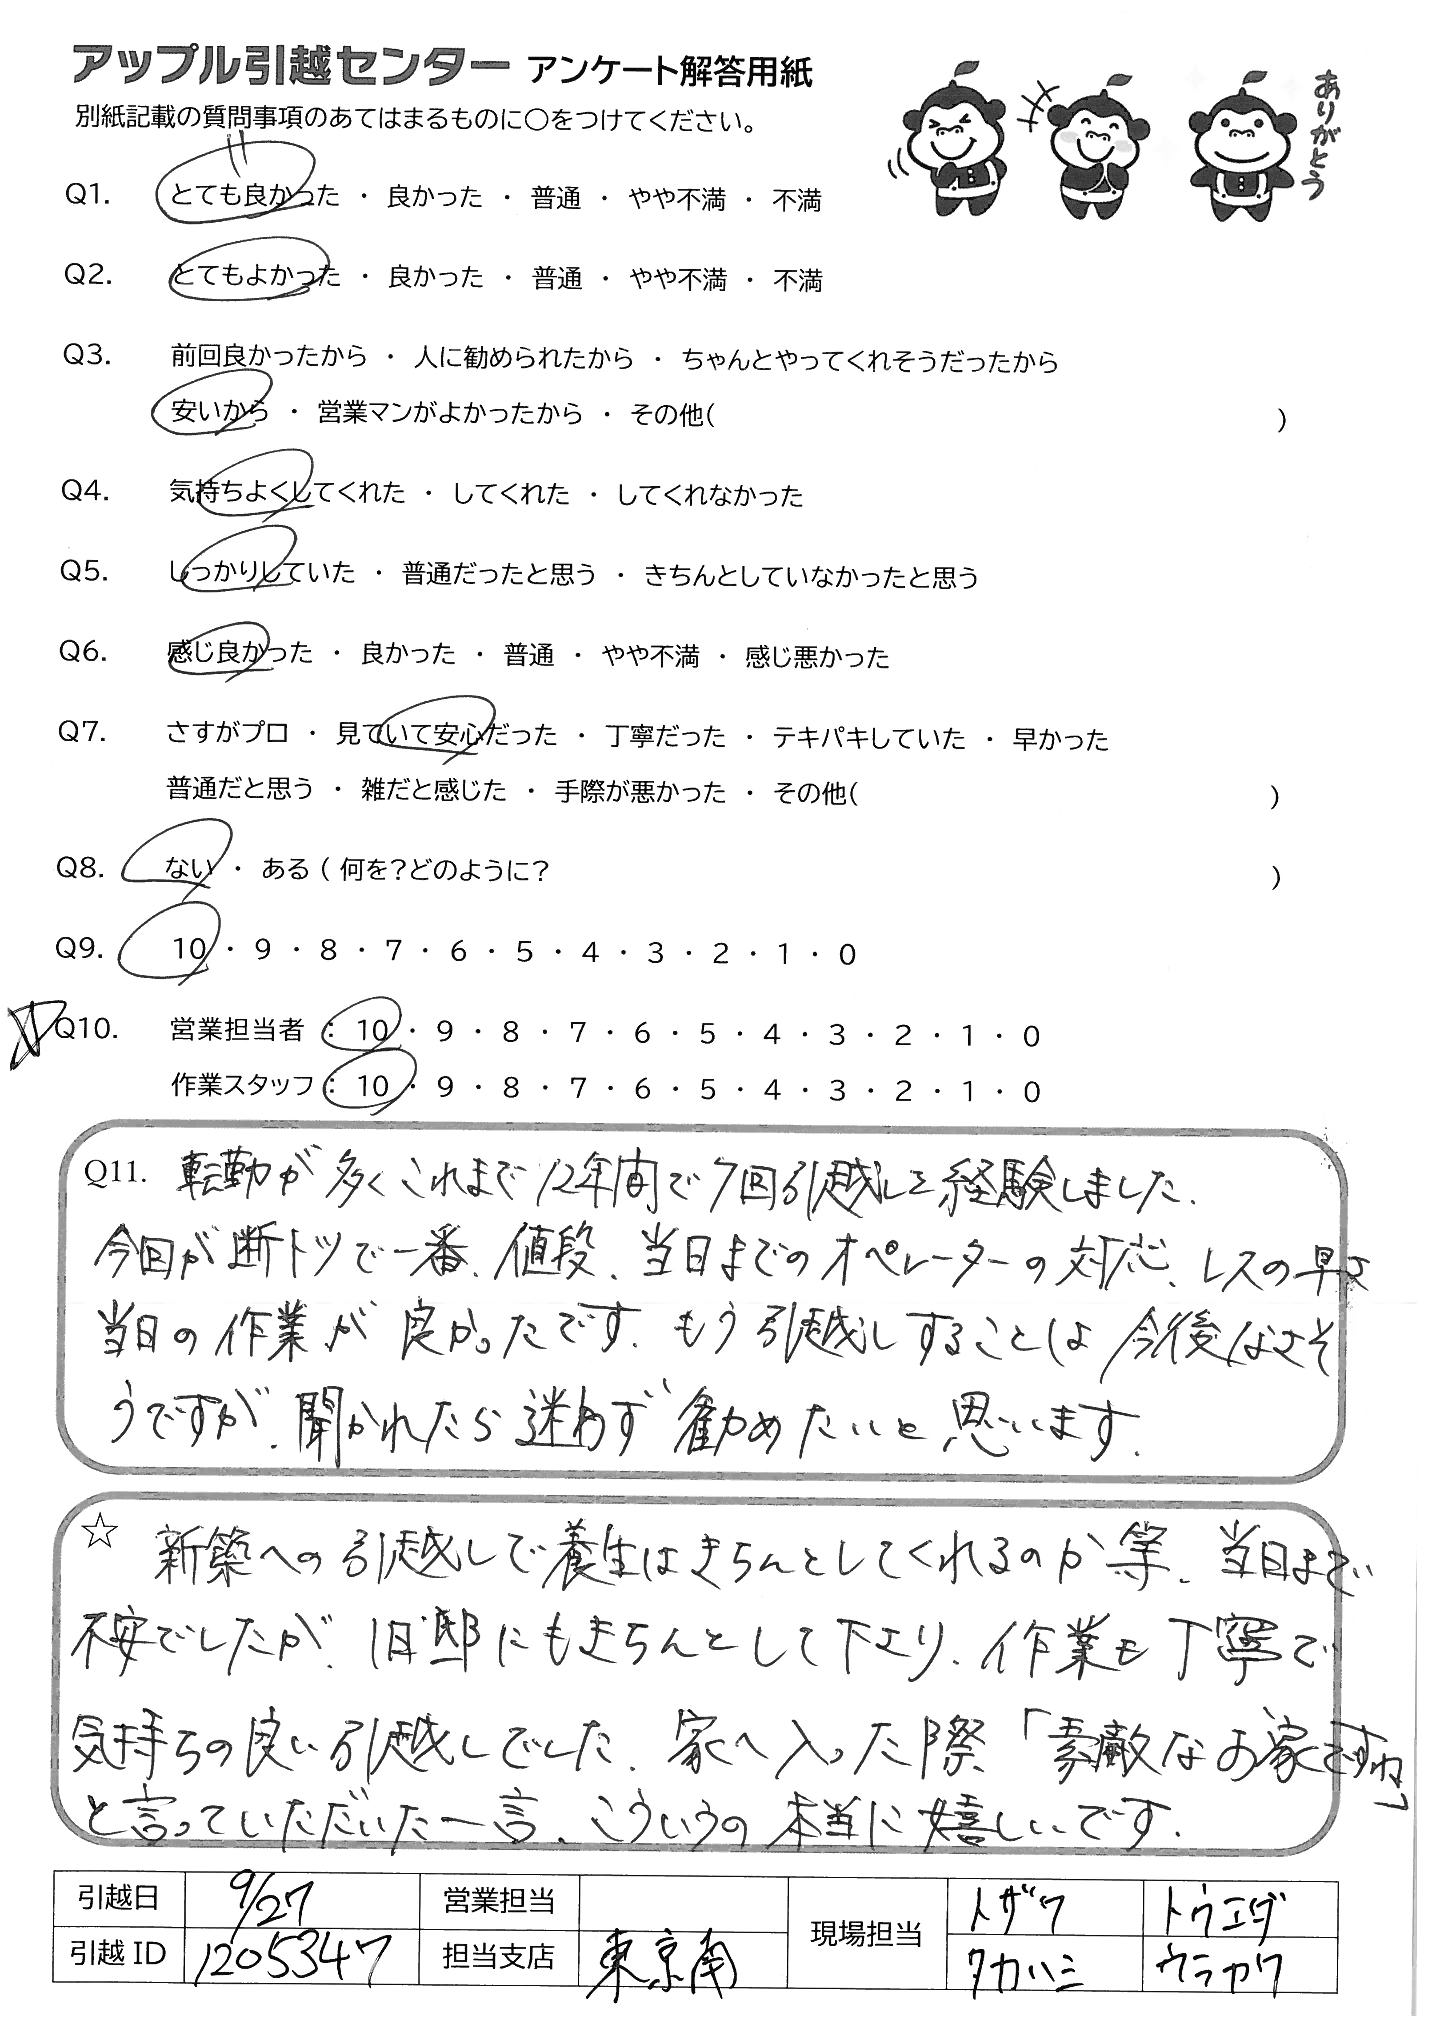 アップル引越センター アンケート解答用紙
別紙記載の質問事項のあてはまるものに○をつけてください。
ありがとう
Q1. とても良かった ・ 良かった ・ 普通 ・ やや不満 ・ 不満
Q2. とてもよかった ・ 良かった ・ 普通 ・ やや不満 ・ 不満
Q3. 前回良かったから ・ 人に勧められたから ・ ちゃんとやってくれそうだったから
安いから ・ 営業マンがよかったから ・ その他( )
Q4. 気持ちよくしてくれた ・ してくれた ・ してくれなかった
Q5. しっかりしていた ・ 普通だったと思う ・ きちんとしていなかったと思う
Q6. 感じ良かった ・ 良かった ・ 普通 ・ やや不満 ・ 感じ悪かった
Q7. さすがプロ ・ 見ていて安心だった ・ 丁寧だった ・ テキパキしていた ・ 早かった
普通だと思う ・ 雑だと感じた ・ 手際が悪かった ・ その他( )
Q8. ない ・ ある ( 何を?どのように? )
Q9. 10 ・ 9 ・ 8 ・ 7 ・ 6 ・ 5 ・ 4 ・ 3 ・ 2 ・ 1 ・ 0
Q10. 営業担当者 : 10 ・ 9 ・ 8 ・ 7 ・ 6 ・ 5 ・ 4 ・ 3 ・ 2 ・ 1 ・ 0
作業スタッフ : 10 ・ 9 ・ 8 ・ 7 ・ 6 ・ 5 ・ 4 ・ 3 ・ 2 ・ 1 ・ 0
Q11. 転勤が多くこれまで12年間で7回引越しを経験しました.
今回が断トツで一番、値段、当日までのオペレーターの対応、レスの早さ
当日の作業が良かったです. もう引越しすることは今後なさそ
うですが、聞かれたら迷わず勧めたいと思います.
☆ 新築への引越しで養生はきちんとしてくれるのか等、当日まで
不安でしたが、旧邸にもきちんとして下さり、作業も丁寧で
気持ちの良い引越しでした. 家へ入った際「素敵なお家ですね」
と言っていただいた一言、こういうの本当に嬉しいです.
引越日 9/27 営業担当 現場担当 トザワ トウエダ
引越ID 1205347 担当支店 東京南 タカハシ ウラカワ